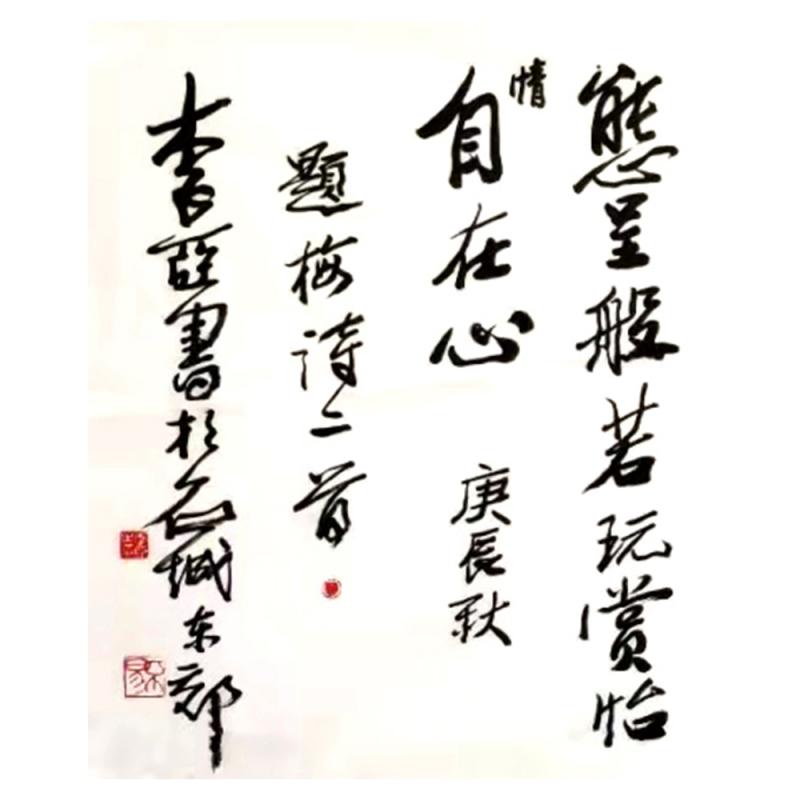 態呈般若玩賞怡
情
自在心 庚辰秋
題梅詩二首
李書於城东郊